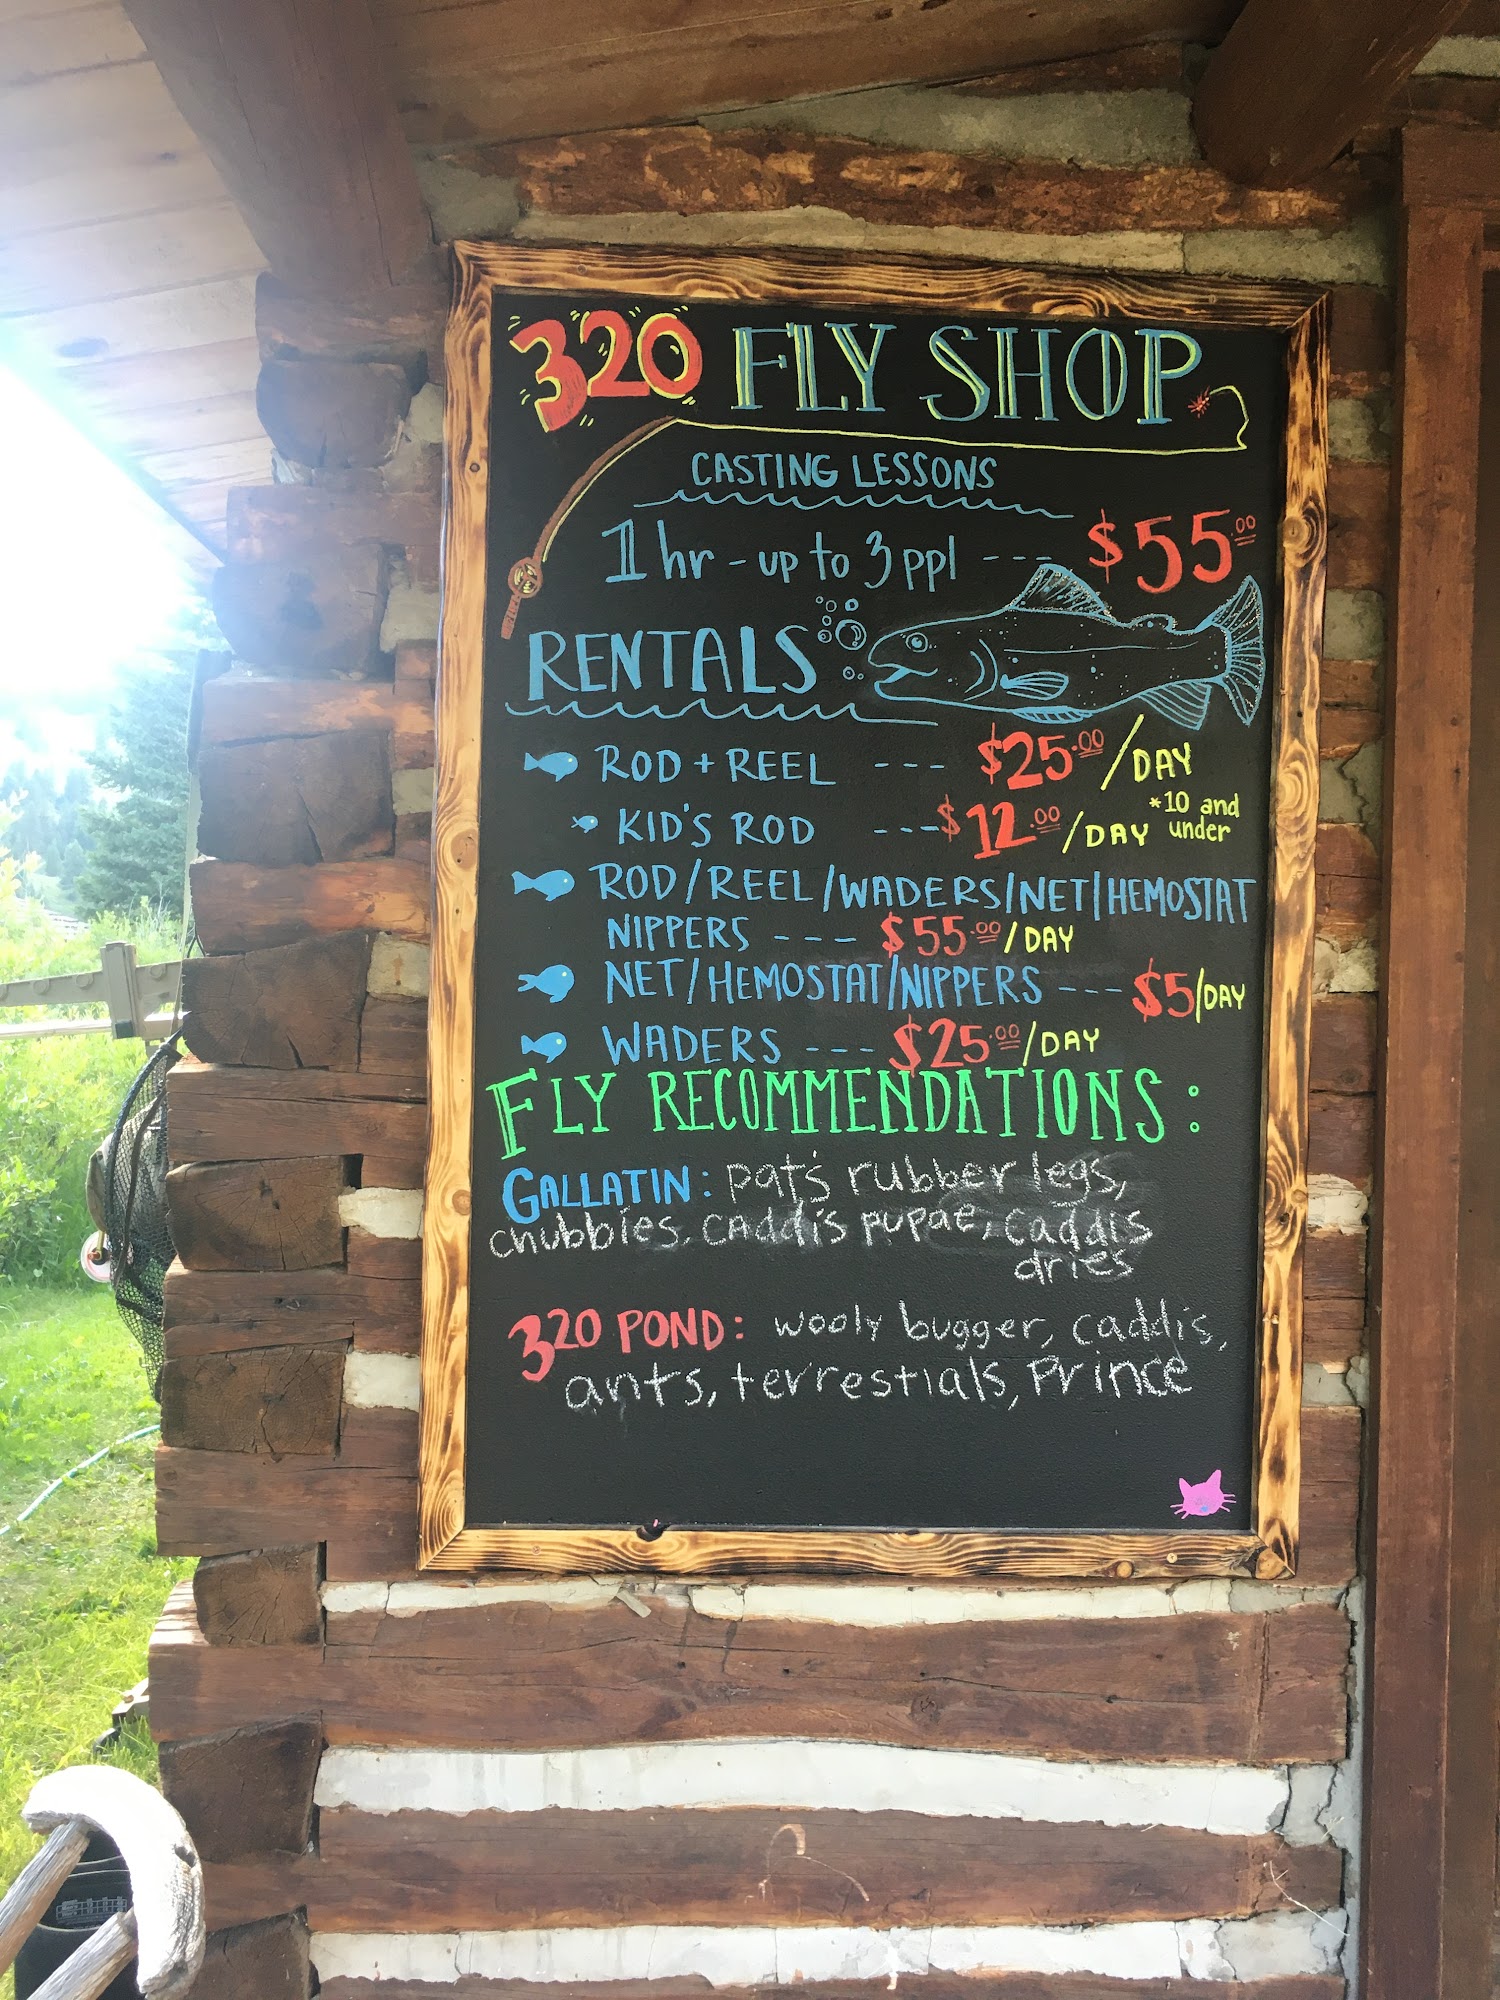 320 FLY SHOP
CASTING LESSONS
1 hr - up to 3 ppl --- $55.00
RENTALS
ROD + REEL --- $25.00/DAY
KID'S ROD --- $12.00/DAY *10 and under
ROD/REEL/WADERS/NET/HEMOSTAT
NIPPERS --- $55.00/DAY
NET/HEMOSTAT/NIPPERS --- $5/DAY
WADERS --- $25.00/DAY
FLY RECOMMENDATIONS:
GALLATIN: pat's rubber legs,
chubbies, caddis pupae, caddis
dries
320 POND: wooly bugger, caddis,
ants, terrestials, Prince